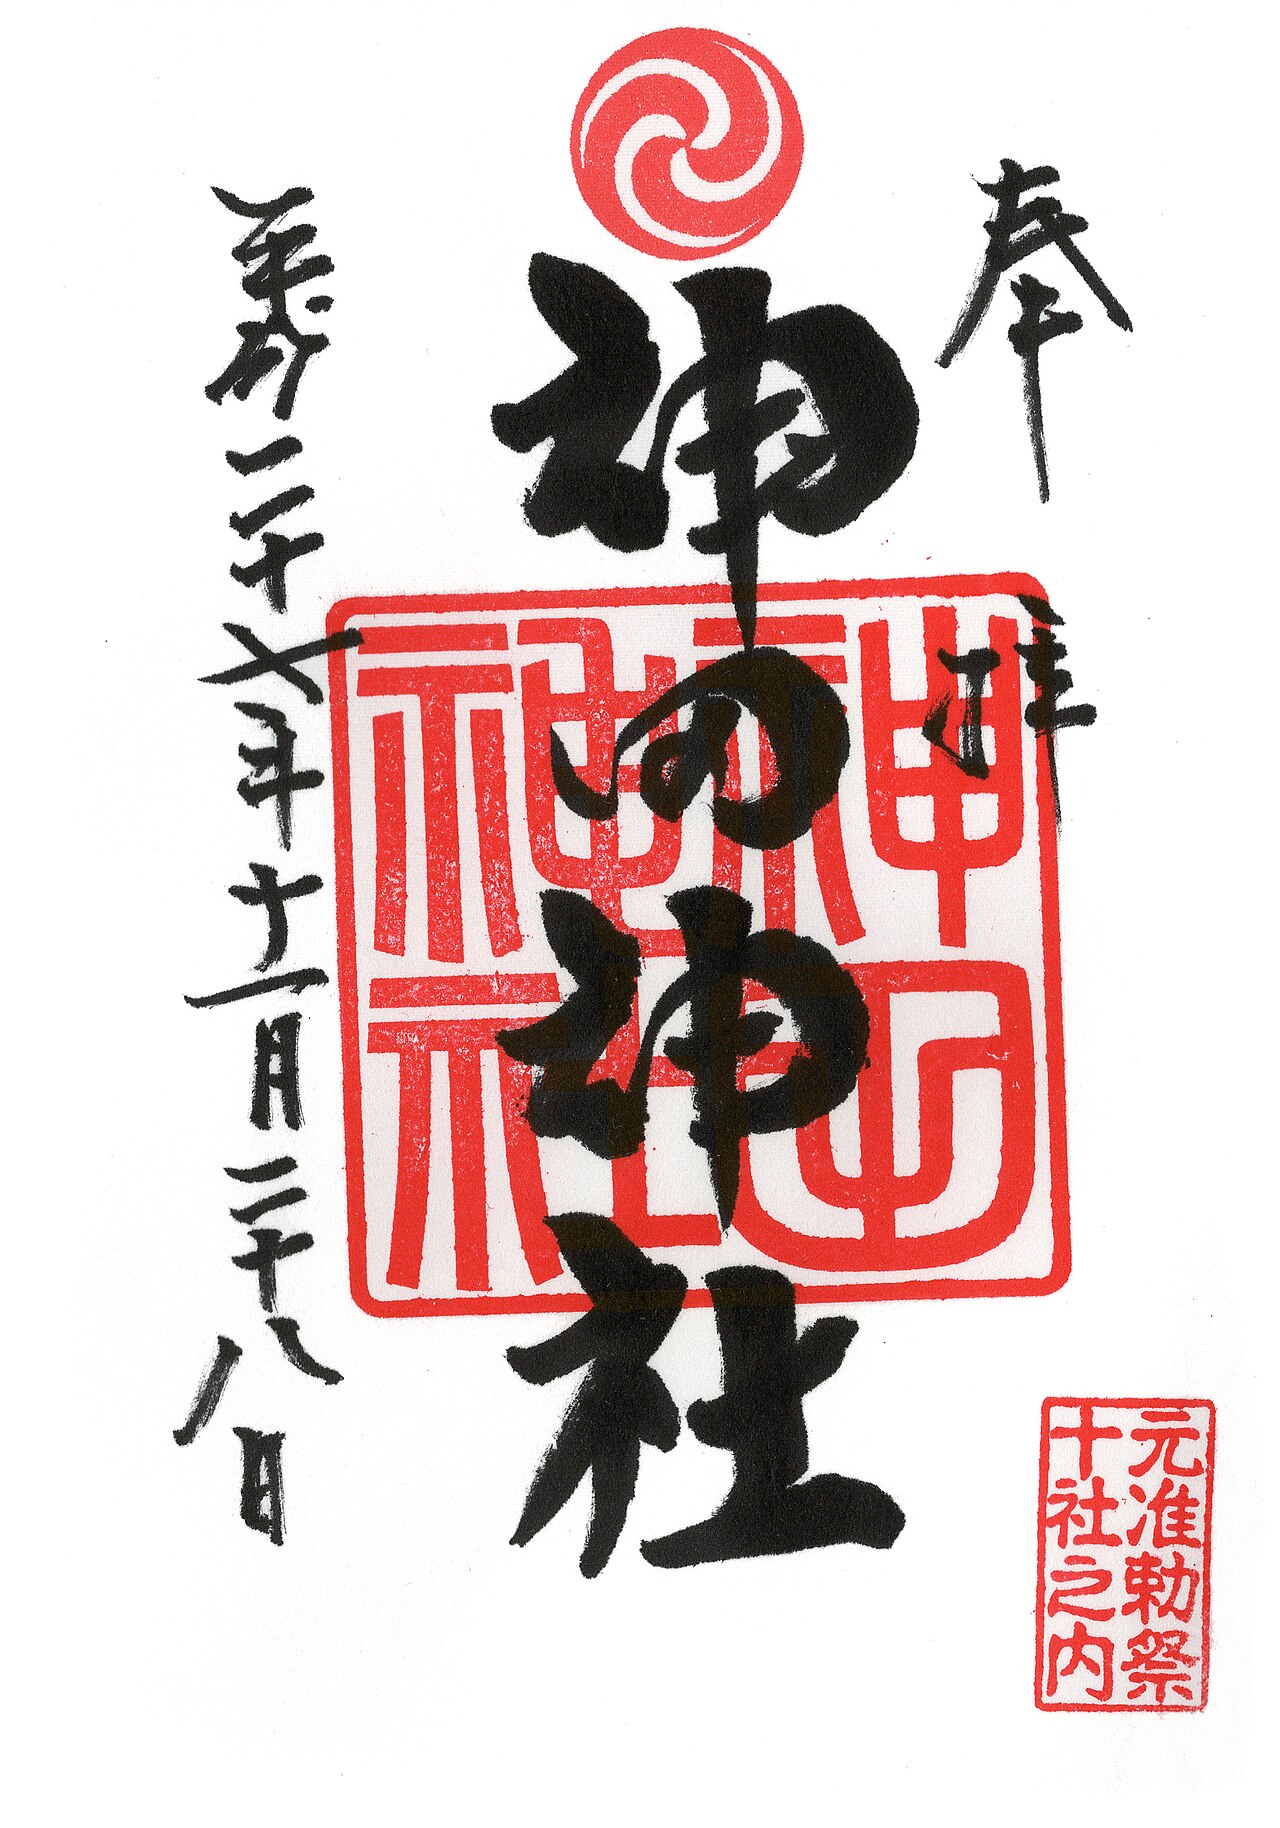 奉拝
元准勅祭
十社之内
神田神社
神田
神社
平成二十七年十一月二十八日